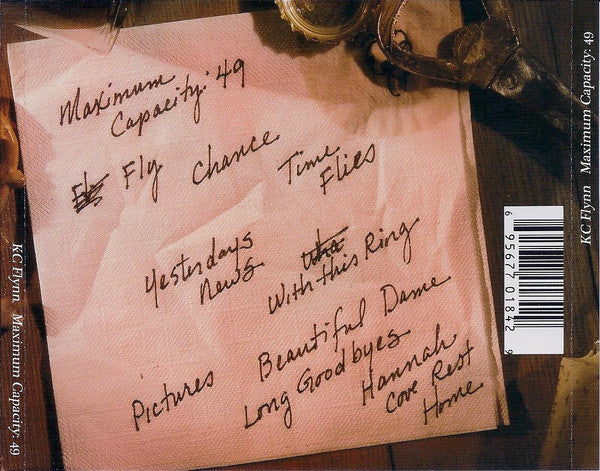 Maximum
Capacity: 49
Fly Chance
Time
Flies
Yesterdays
News
With this Ring
Pictures
Beautiful Dame
Long Goodbyes
Hannah
Cove Rest
Home
KC Flynn Maximum Capacity: 49
KC Flynn Maximum Capacity: 49
6 95677 01842 9